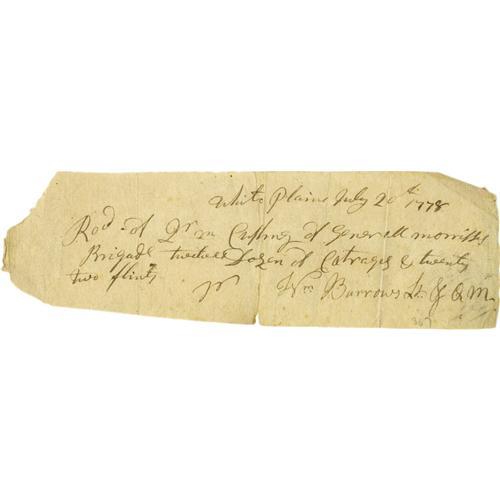 White Plains July 20th 1778
Recd of Qr m Cushing of Generall morriss
Brigade twelve Dozen of Catrages & twenty
two flints
pr Wm Burrows Lt & Q M
367